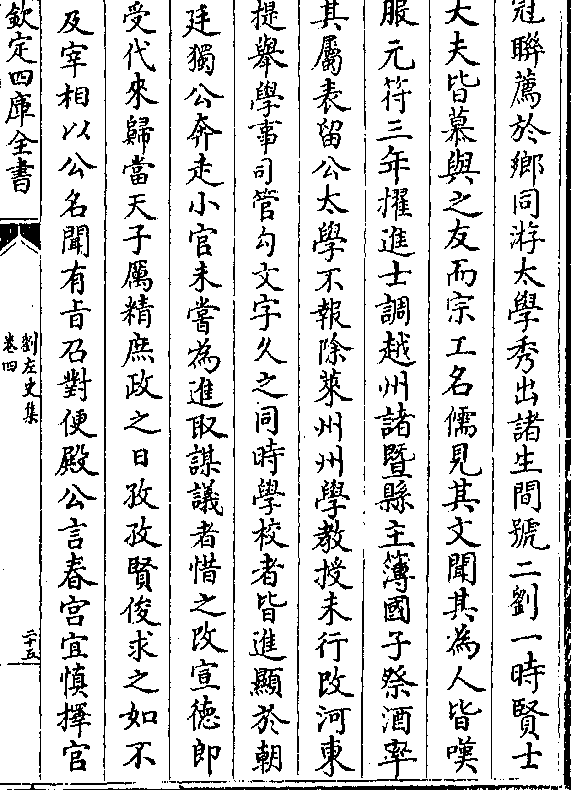 冠聯薦於鄉同游太學秀出諸生間號二劉一時賢士
大夫皆慕與之友而宗工名儒見其文聞其為人皆嘆
服元符三年擢進士調越州諸暨縣主簿國子祭酒率
其屬表留公太學不報除萊州州學教授未行改河東
提舉學事司管勾文字久之同時學校者皆進顯於朝
廷獨公奔走小官未嘗為進取謀議者惜之改宣徳郎
受代來歸當天子厲精庶政之日孜孜賢俊求之如不
及宰相以公名聞有㫖召對便殿公言春宮宜慎擇官
欽定四庫全書
劉左史集
卷四
二十五